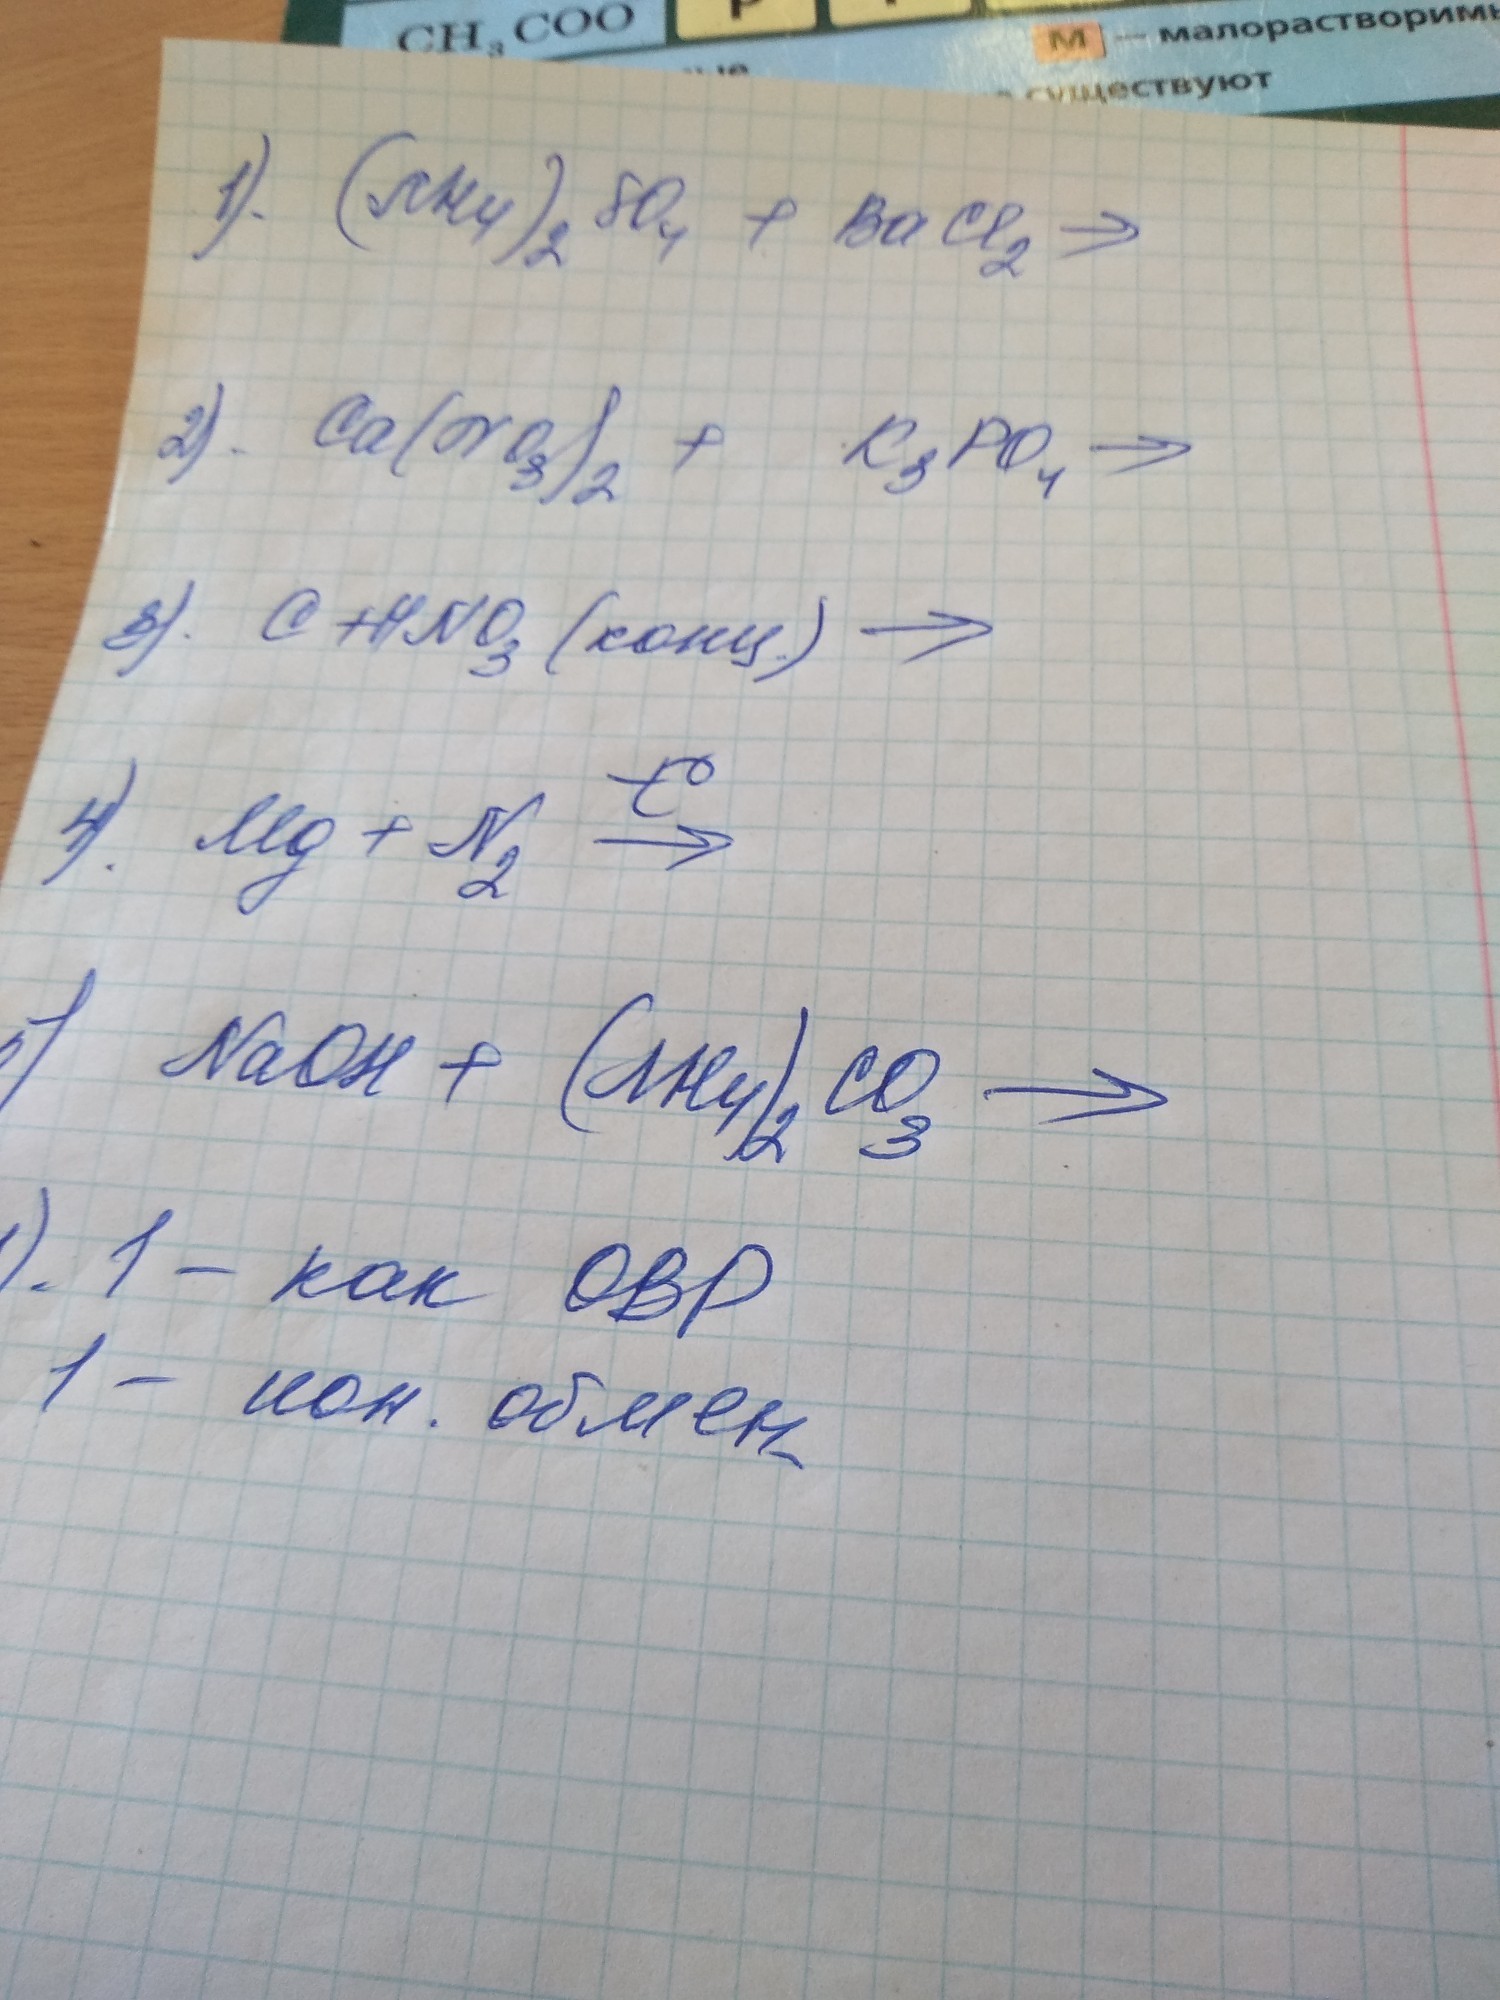 CH₃COO Р
М — малорастворимы
существуют
1). (NH₄)₂SO₄ + BaCl₂ →
2). Ca(NO₃)₂ + K₃PO₄ →
3). C + HNO₃ (конц.) →
4). Mg + N₂ t° →
NaOH + (NH₄)₂CO₃ →
). 1 – как ОВР
1 – ион. обмен